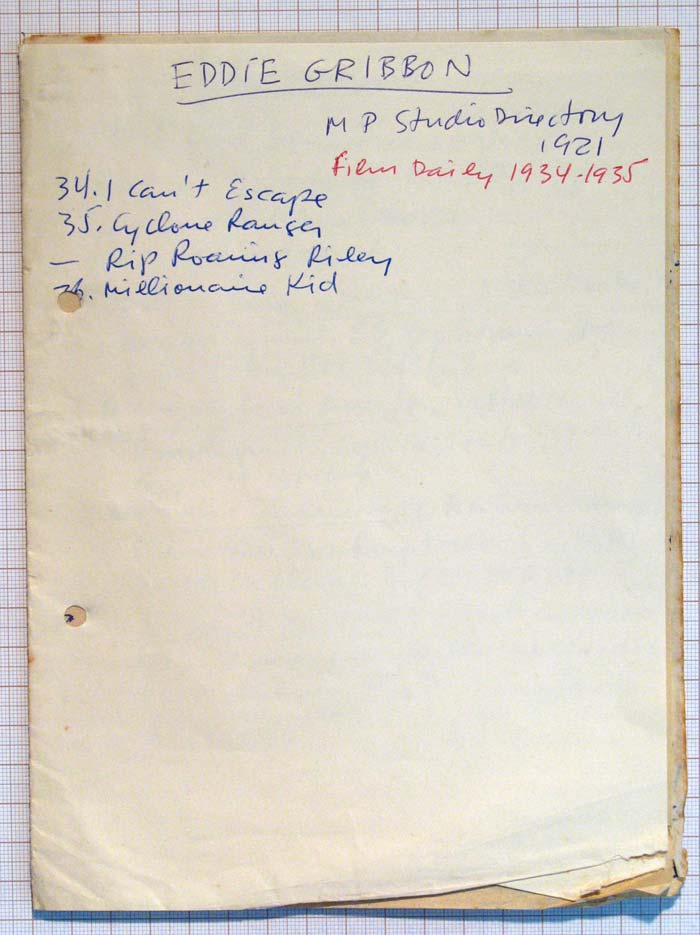 EDDIE GRIBBON
M P Studio Directory
1921
Film Daily 1934-1935
34. I can't Escape
35. Cyclone Ranger
— Rip Roaring Riley
36. Millionaire Kid